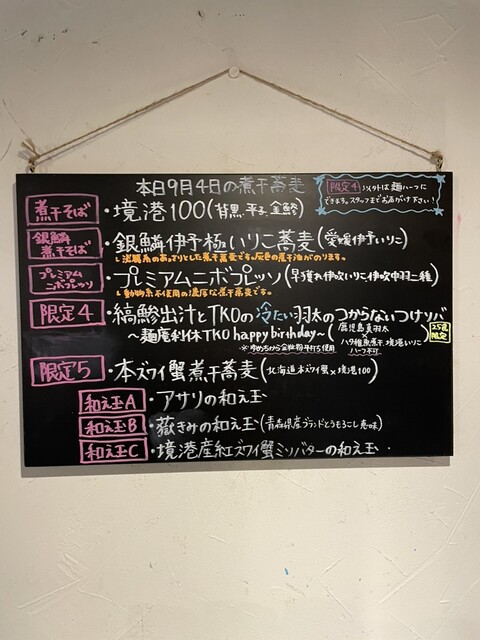 本日9月4日の煮干蕎麦
限定4 以外は麺ハーフに
できます。スタッフまでお声がけ下さい!
煮干そば ・境港100(背黒・平子・金鯵)
銀鱗煮干そば ・銀鱗伊予極いりこ蕎麦(愛媛伊予いりこ)
淡麗系のあっさりとした煮干蕎麦です。灰色の煮干油がのります。
プレミアムニボプレッソ ・プレミアムニボプレッソ(早獲れ伊吹いりこ伊吹中羽二種)
動物系不使用の濃厚な煮干蕎麦です。
限定4 ・縞鯵出汁とTKOの冷たい羽太のつからないつけソバ
~麺庵利休TKO happy birthday~(鹿児島真羽太
ハタ稚魚煮干、境港いりこ
ハーフ不可 25食限定
※ゆめちから全粒粉平打ち使用
限定5 ・本ズワイ蟹煮干蕎麦(北海道本ズワイ蟹×境港100)
和え玉A ・アサリの和え玉
和え玉B ・嶽きみの和え玉(青森県産ブランドとうもろこし意味)
和え玉C ・境港産紅ズワイ蟹ミソバターの和え玉